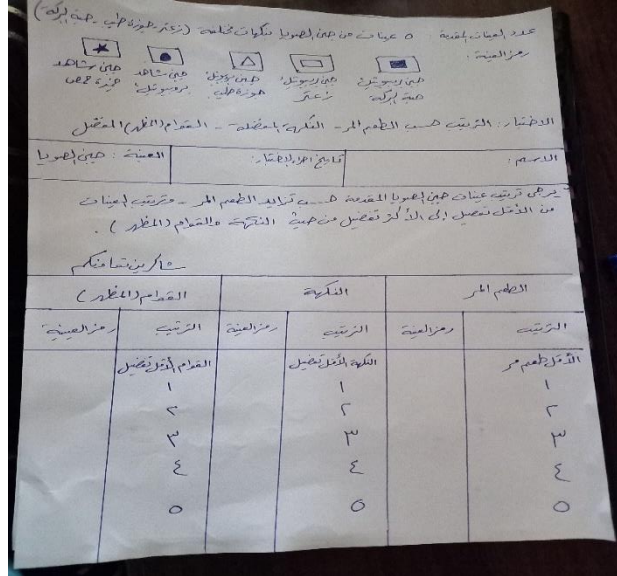 عدد العينات المقدمة : ٥ عينات من جبن الصويا بنكهات مختلفة (زعتر - جوزة طيب - حبة البركة)
رمز العينة :
جبن بروبيوتيك حبة البركة
جبن بروبيوتيك زعتر
جبن بروبيوتيك جوزة طيب
جبن شاهد بروبيوتيك
جبن شاهد
الاختبار : الترتيب حسب الطعم المر - النكهة المفضلة - القوام (المظهر) المفضل
الاسم : تاريخ اجراء الاختبار : العينة : جبن الصويا
يرجى ترتيب عينات جبن الصويا المقدمة حسب تزايد الطعم المر - وترتيب العينات
من الأقل تفضيل إلى الأكثر تفضيل من حيث النكهة والقوام (المظهر) .
شاكرين تعاونكم
الطعم المر النكهة القوام (المظهر)
الترتيب رمز العينة الترتيب رمز العينة الترتيب رمز العينة
الأقل طعم مر النكهة الأقل تفضيل القوام الأقل تفضيل
١ ١ ١
٢ ٢ ٢
٣ ٣ ٣
٤ ٤ ٤
٥ ٥ ٥